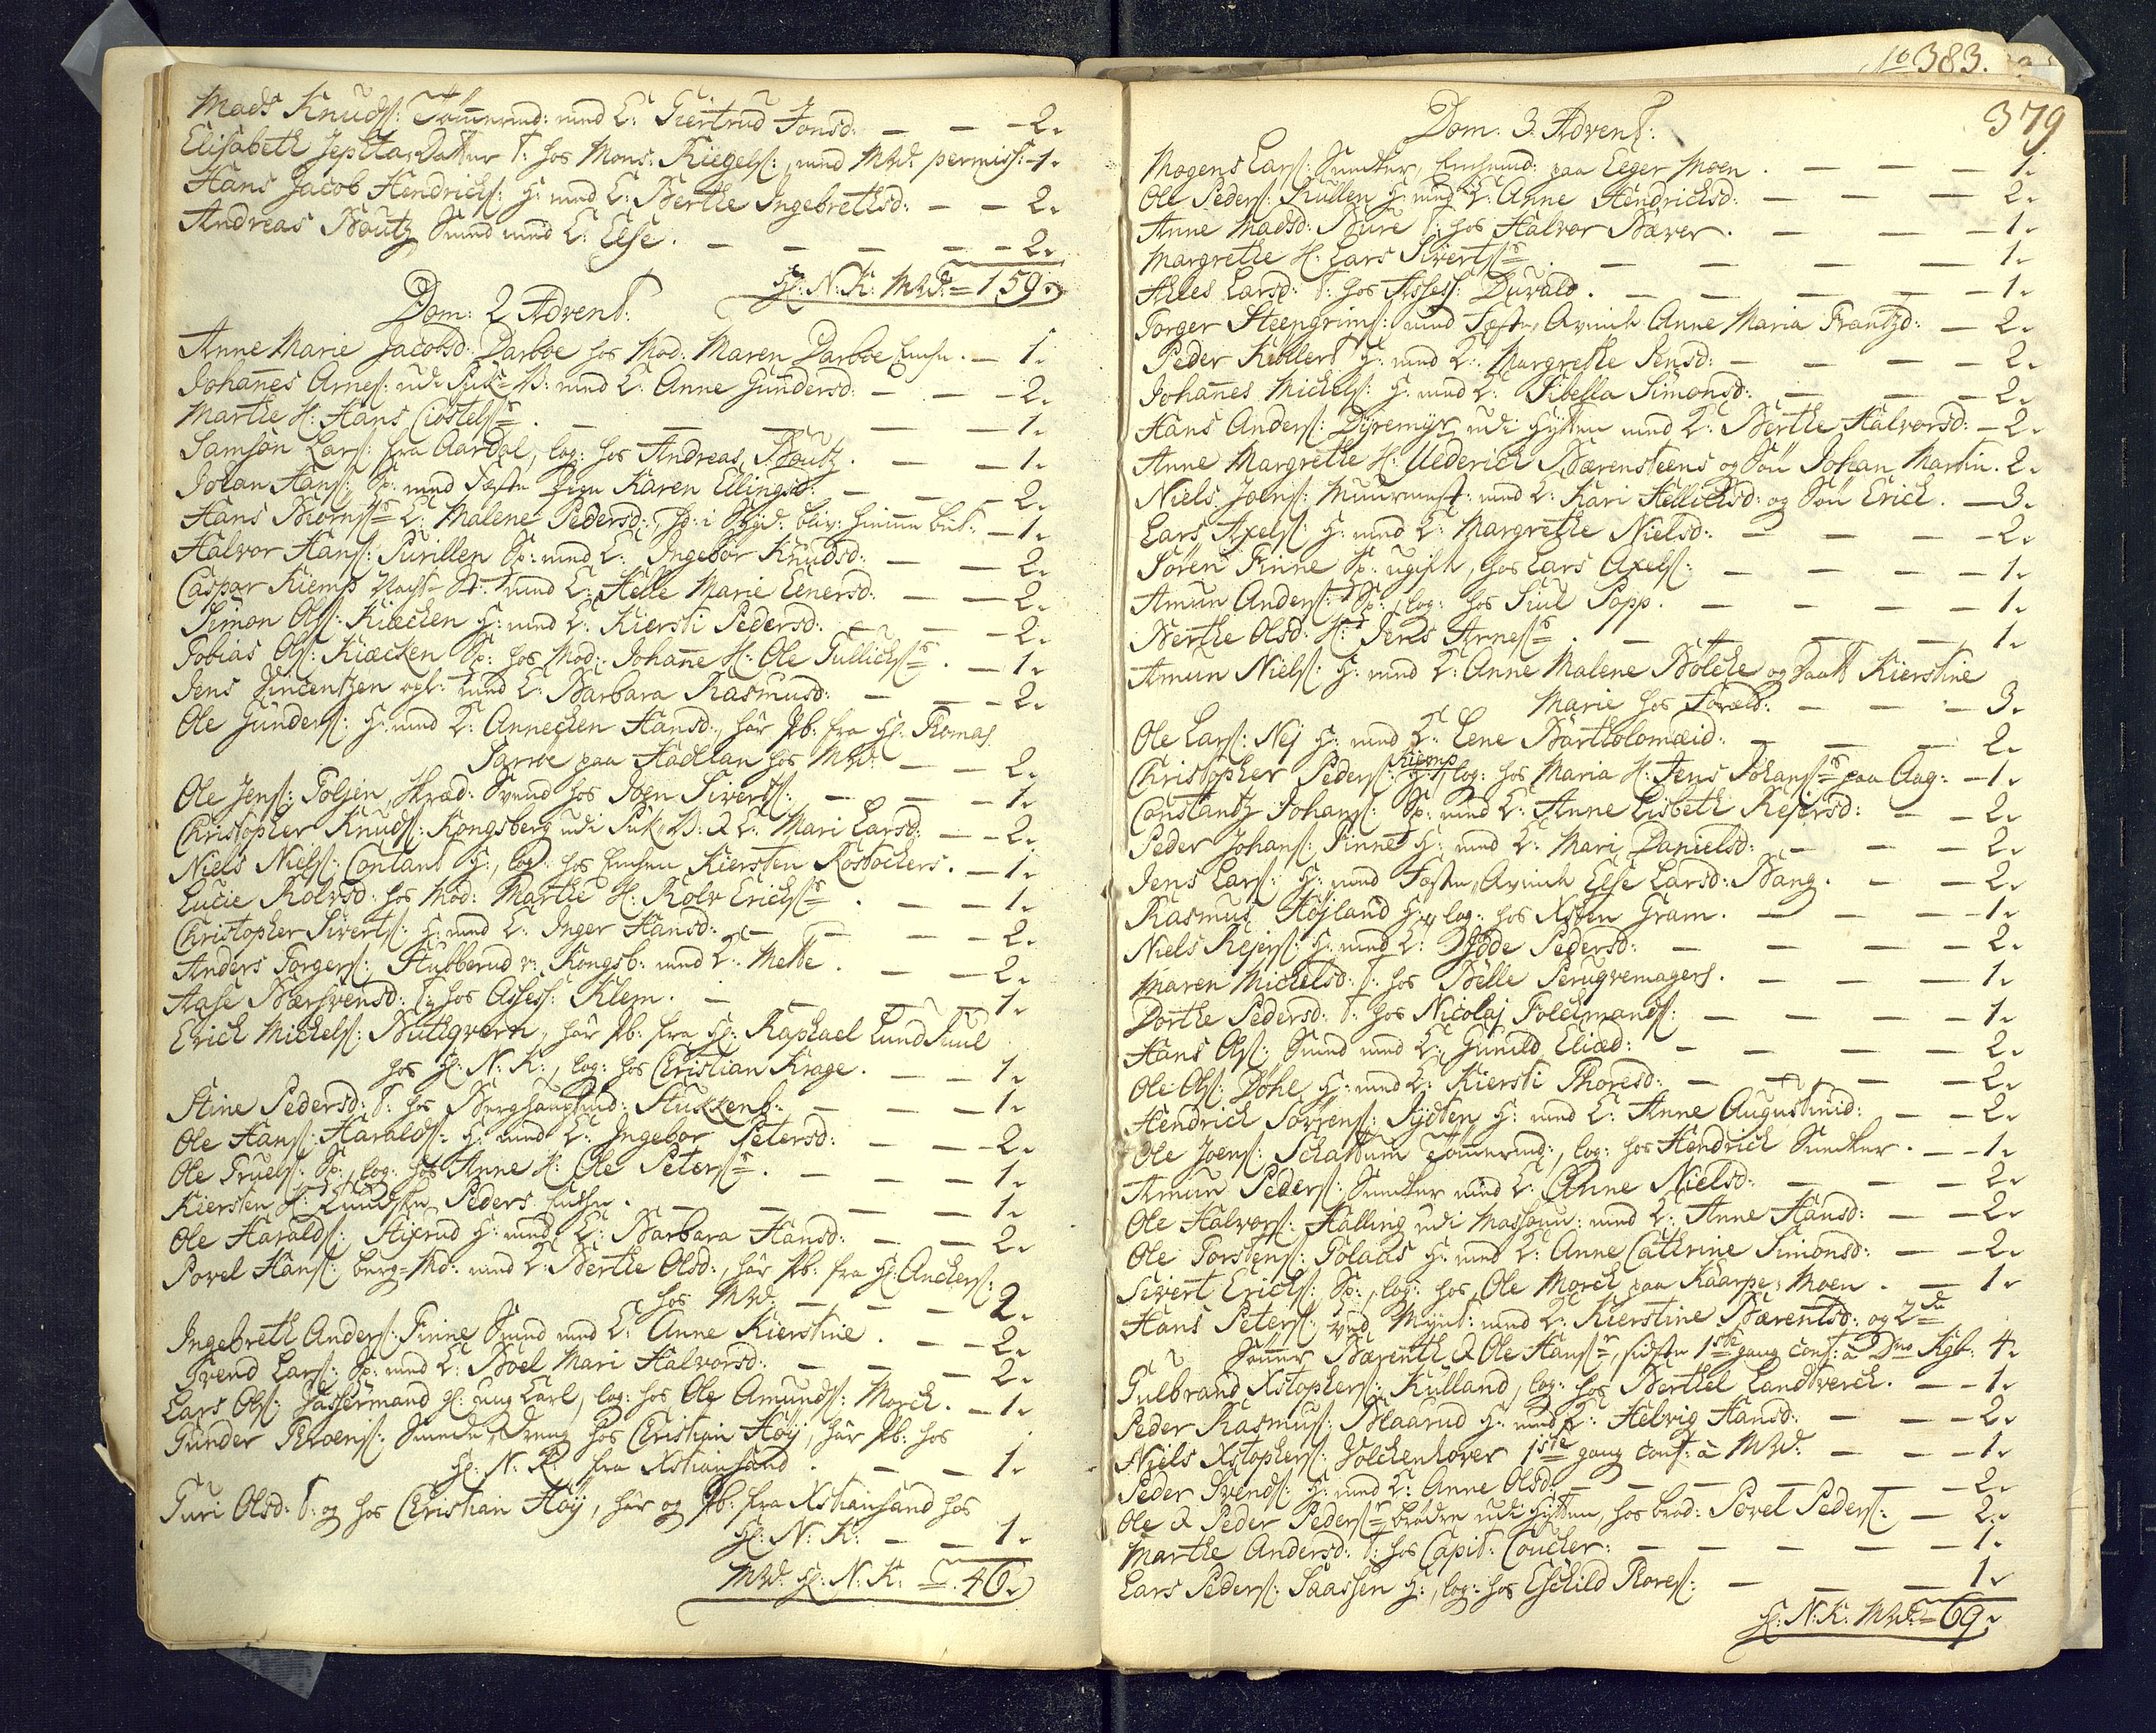 Mads Knuds: Tømmermd: med K: Giertrud Jonsd: — — — 2.
Elisabeth Jepsta Datter T: hos Mons: Kiegels:, med MWd: permiss: — 1.
Hans Jacob Hendrichs: H: med K: Berthe Ingebrethsd: — — 2.
Andreas Boutz Smed med K: Else. — — — — — 2.
Hr: N: K: MWd: = 159.
Dom: 2 Advent:
Anne Marie Jacobsd: Darboe hos Mod: Maren Darboe Enche. — 1.
Johannes Arnes: udi Puk-V: med K: Anne Gundersd: — — — 2.
Marthe H: Hans Clostels: — — — — — 1.
Samson Lars: fra Aardal, log: hos Andreas Boutz. — — 1.
Johan Hans: Sp: med Fæste Pige Karen Ellingsd: — — — 2.
Hans Biørns: K: Malene Pedersd: — 1.
Halvor Hans: Purillen Sp: med K: Ingebor Knudsd: — — 2.
Caspar Kiemp med K: Helle Marie Einersd: — — 2.
Simon Ols: Kiæcken H: med K: Kiersti Pedersd: — — 2.
Tobias Ols: Kiæcken Sp: hos Mod: Johanne H: Ole Tullichs: — 1.
Jens Vincentzen med K: Barbara Rasmusd: — — — 2.
Ole Gunders: H: med K: Annechen Hansd:, har Pb: fra Hr: Thomas
Barboe paa Hadeland hos MWd: — — 2.
Ole Jens: Foljen, Skræd: Svend hos Joen Siverts: — — — 1.
Christopher Knuds: Kongsberg udi Puk V: & K: Mari Larsd: — — 2.
Niels Niels: Contant H:, log: hos Enchen Kiersten Rostochers. — 1.
Lucie Rolvsd: hos Mod: Marthe H: Rolv Erichs: — — 1.
Christopher Siverts: H: med K: Inger Hansd: — — — 2.
Anders Torgers: Stubberud v: Kongsb: med K: Mette. — — 2.
Aase Børsvensd: T: hos Assess: Klem. — — — — 1.
Erich Michels: Buttegvern, har Pb: fra Hr: Raphael Lund Juul
hos Hr: N: K:, log: hos Christian Krage. — — 1.
Stine Pedersd: T: hos Berghauptmd: Stukkenb: — — — 1.
Ole Hans: Haralds: H: med K: Ingebor Petersd: — — 2.
Ole Truels: Sp:, log: hos Anne H: Ole Peters: — — — 1.
Kiersten H: Knudsten Peders Enche. — — — — 1.
Ole Haralds: Hixrud H: med K: Barbara Hansd: — — 2.
Povel Hans: berg-Md: med K: Berthe Olsd:, har Pb: fra Hr: Anchers:
hos MWd: — — — 2.
Ingebreth Anders: Finne Smed med K: Anne Kierstine. — — 2.
Svend Lars: Sp: med K: Boel Mari Halvorsd: — — — 2.
Lars Ols: Vassermand H: ung Karl, log: hos Ole Amunds: Morch. — 1.
Gunder Broens: Smede Dreng hos Christian Høy, har Pb: hos
Hr: N: K: fra Xstiansand. — — — 1.
Turi Olsd: T: og hos Christian Høy, har og Pb: fra Xstiansand hos
Hr: N: K: — — 1.
MWd: Hr: N: K: = 46.
No 383.
379
Dom: 3. Advent:
Mogens Lars: Snedker, paa Eeger Moen. — — — 1.
Ole Peders: Kullen H: med K: Anne Hendrichsd: — — — 2.
Anne Madsd: Bure T: hos Halvor Bæver. — — — 1.
Margrethe H: Lars Siverts: — — — — — 1.
Ahles Larsd: T: hos Assess: Duvals. — — — — — 1.
Torger Steengrims: med Fæste Qvinde Anne Maria Frantzd: — 2.
Peder Kellers: H: med K: Margrethe Jensd: — — — — 2.
Johannes Michels: H: med K: Sibella Simonsd: — — — 2.
Hans Anders: Dyremyr udi Hytten med K: Berthe Halvorsd: — 2.
Anne Margrethe H: Uldrich Bærensteens og Søn Johan Martin. 2.
Niels Joens: Muurmest: med K: Kari Hellichsd: og Søn Erich. — 3.
Lars Axels: H: med K: Margrethe Nielsd: — — — — 2.
Søren Finne Sp: ugift, hos Lars Axels: — — — — 1.
Amun Anders: Sp:, log: hos Siul Popp. — — — — 1.
Berthe Olsd: H: Jens Arnes: — — — — 1.
Amun Niels: H: med K: Anne Malene Bølche og Datt: Kierstine
Marie hos Foræld: — — — 3.
Ole Lars: Nej H: med K: Lene Bartholomæid: — — — 2.
Christopher Peders: Kiemp H:, log: hos Maria H: Jens Johans: paa Aag: — 1.
Constantz Johans: Sp: med K: Anne Lisbeth Rejersd: — — 2.
Peder Johans: Finne H: med K: Mari Danielsd: — — — 2.
Jens Lars: H: med Fæste Qvinde Else Larsd: Bang. — — 2.
Rasmus Højland H:, log: hos Xsten Gram. — — — — 1.
Niels Rejers: H: med K: Gjøde Pedersd: — — — — 2.
Maren Michelsd: T: hos Bølle Peruqvemagers. — — — — 1.
Dorthe Pedersd: T: hos Nicolaj Folchmands: — — — — 1.
Hans Ols: Smed med K: Gunild Eliæd: — — — — 2.
Ole Ols: Dohle H: med K: Kiersti Thoresd: — — — — 2.
Hendrich Sørrens: Sydten H: med K: Anne Augustinid: — — 2.
Ole Joens: Schattum Tømmermd:, log: hos Hendrich Snedker. — — 1.
Amun Peders: Snedker med K: Anne Nielsd: — — — 2.
Ole Halvors: Halling udi Masoun: med K: Anne Hansd: — — 2.
Ole Torstens: Tolaas H: med K: Anne Cathrine Simonsd: — — 2.
Sivert Erichs: Sp:, log: hos Ole Morch paa Kaarpe Moen. — 1.
Hans Peters: ved Mynt: med K: Kierstine Bærentsd: og 2de
Sønner Bærenth & Ole Hans:, sidste 1ste gang conf: a Dno Kgb: 4.
Gulbrand Xstophers: Kulland, log: hos Berthel Landtverch. — — 1.
Peder Rasmus: Blaarud H: med K: Helvig Hansd: — — — 2.
Niels Xstophers: Volchenhover 1ste gang conf: a MWd: — — — 1.
Peder Svends: H: med K: Anne Olsd: — — — — — 2.
Ole & Peder Peders: brødre udi Hytten, hos brod: Povel Peders: — 2.
Marthe Andersd: T: hos Capit: Coucher: — — — — — 1.
Lars Peders: Saassen H:, log: hos Eschild Thores: — — — 1.
Hr: N: K: MWd: = 69.